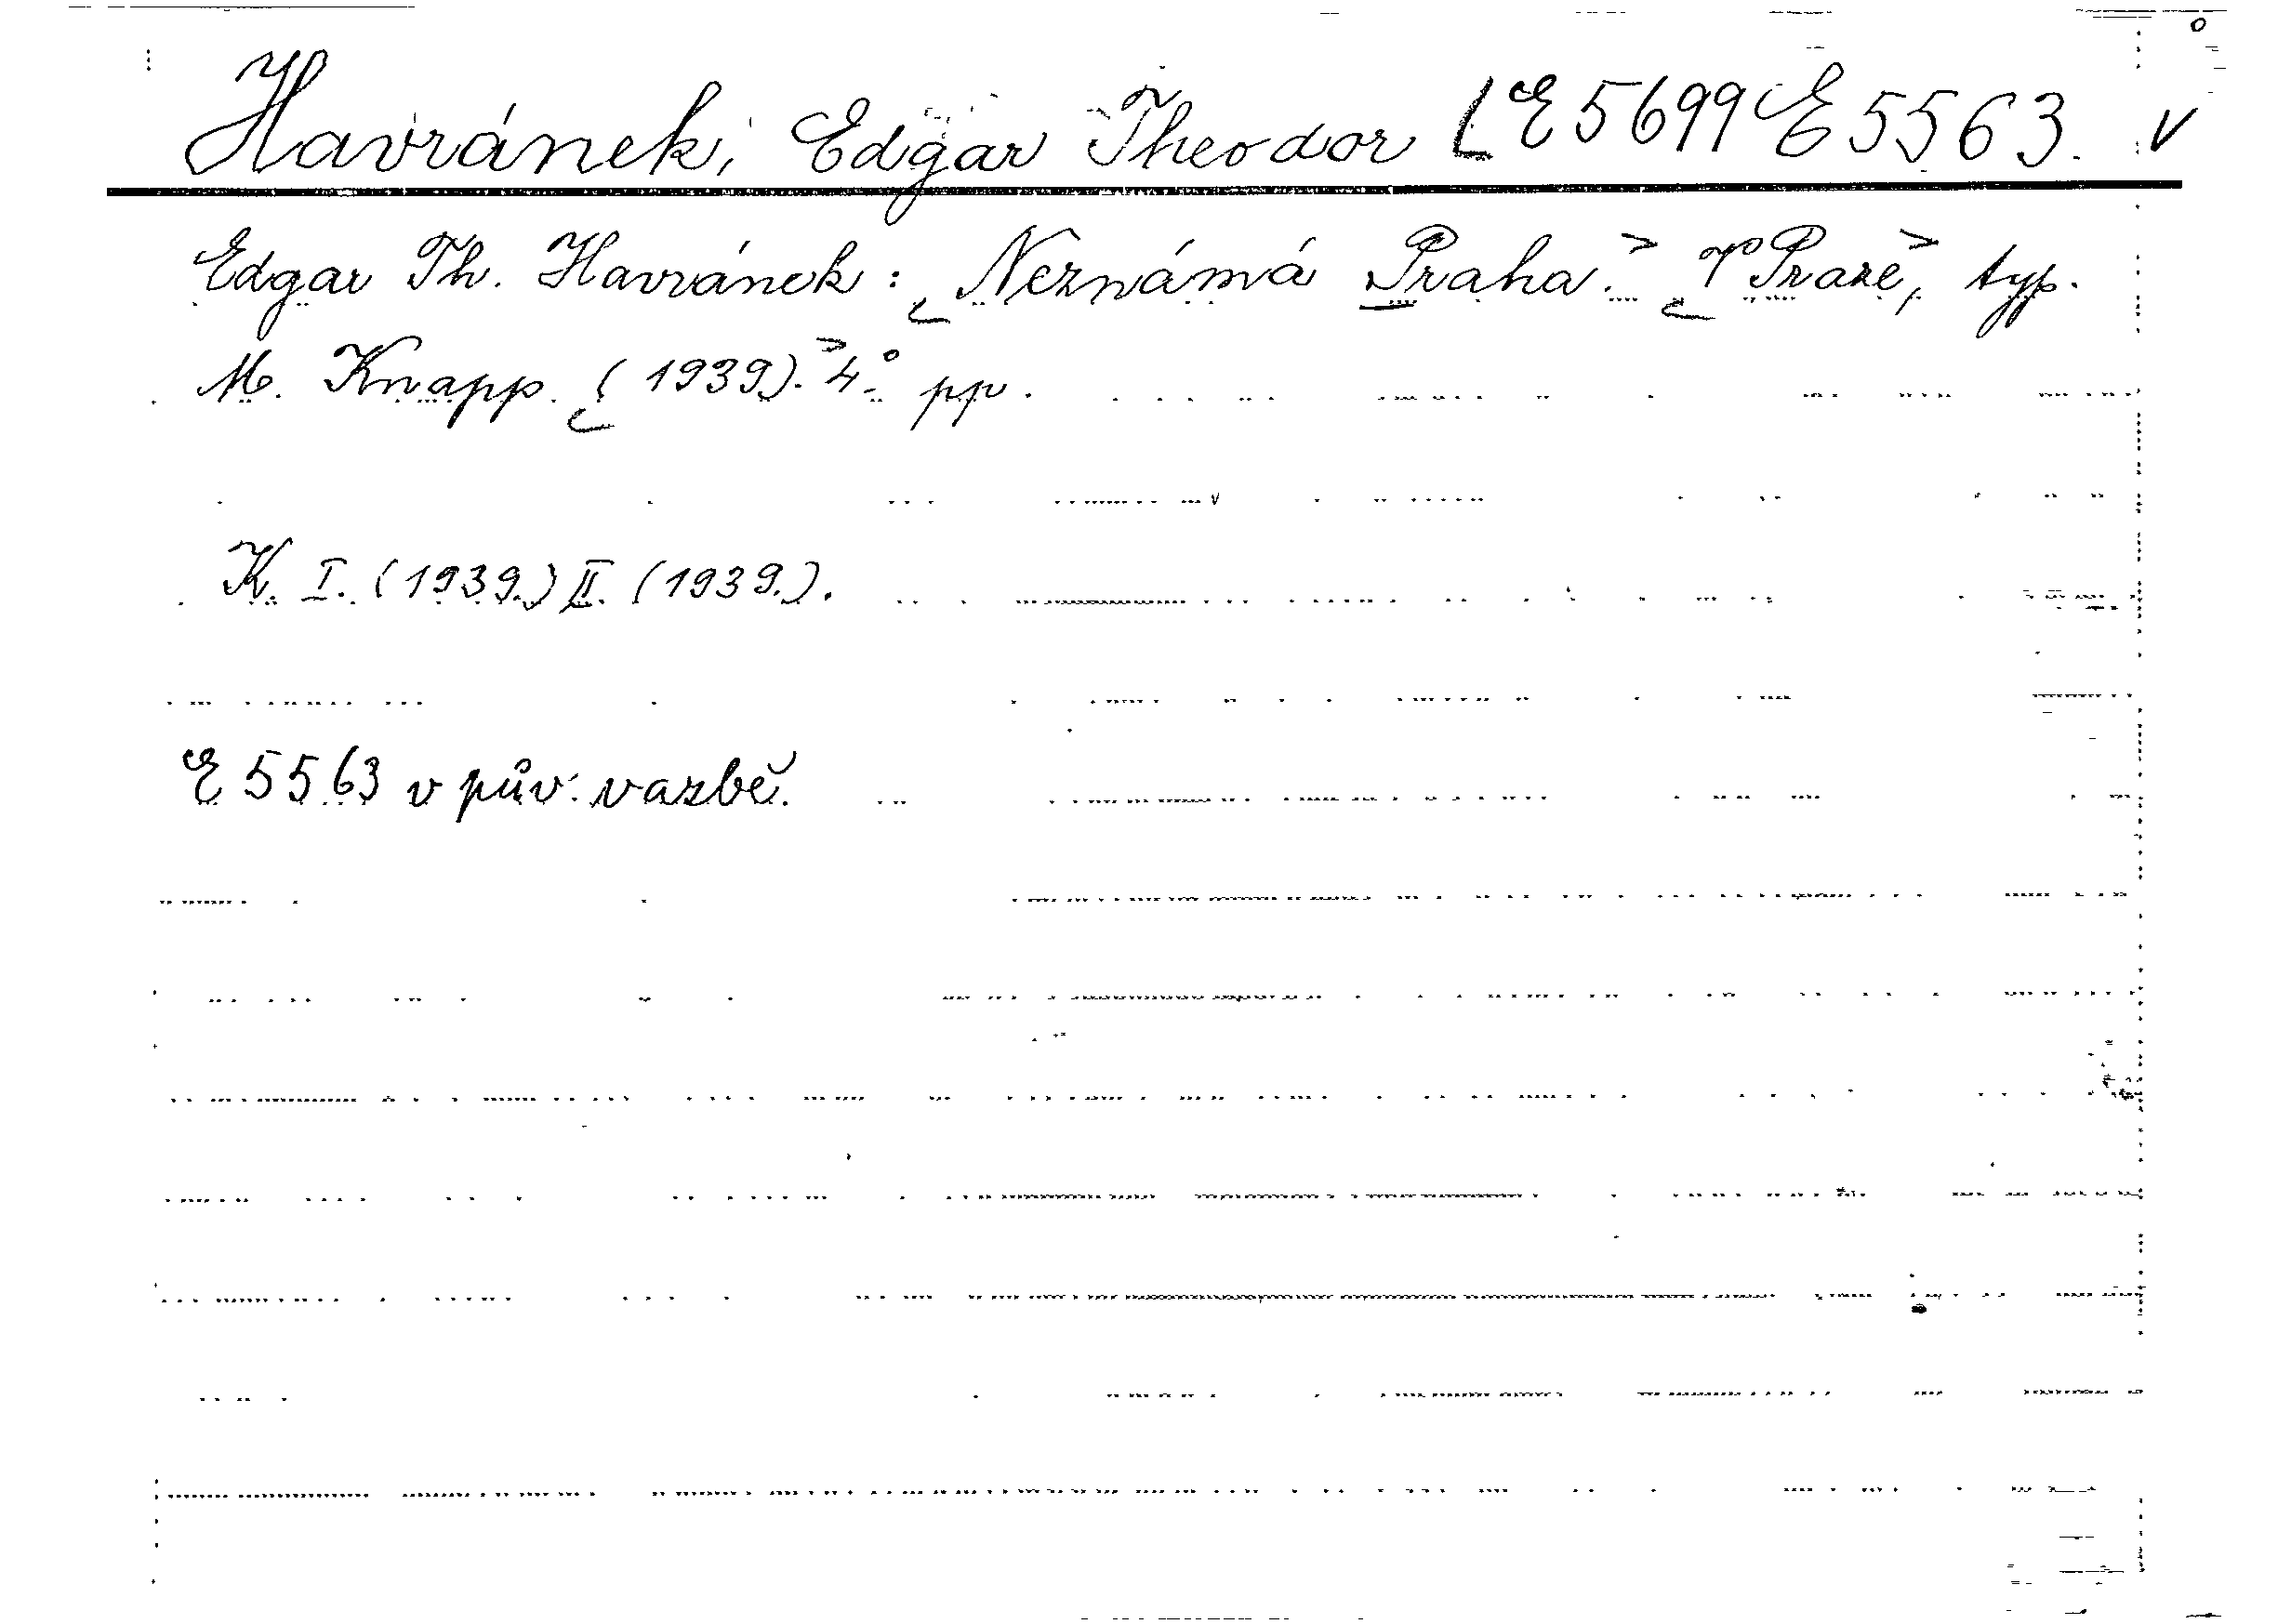 Havránek, Edgar Theodor [E 5699 E 5563. v
Edgar Th. Havránek: Neznámá Praha. V Praze, typ.
M. Knapp. (1939). 4° pp.
K. I. (1939.) II. (1939.).
E 5563 v pův. vazbě.